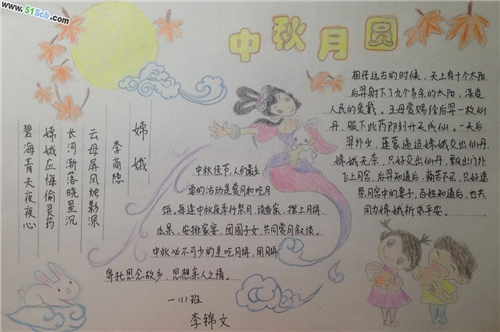 www.51Scb.com
中秋月圆
嫦娥
李商隐
云母屏风烛影深
长河渐落晓星沉
嫦娥应悔偷灵药
碧海青天夜夜心
中秋佳节，人们最主
要的活动是赏月和吃月
饼。每逢中秋夜举行祭月、设香案、摆上月饼、
瓜果、安排家宴、团圆子女、共同赏月叙谈。
中秋必不可少的是吃月饼，用月饼
寄托思念故乡，思想亲人之情。
一(1)班
李锦文
相传远古的时候，天上有十个太阳
后羿射下了九个多余的太阳，深受
人民的爱戴。王母赏赐给后羿一枚仙
丹，服下此药即刻升天成仙。一天后
羿外出，蓬蒙逼迫嫦娥交出仙丹，
嫦娥无奈，只好吞出仙丹，飘出门外
飞上月宫。后羿知道后，痛苦不已，只好遥
祭月宫中的妻子。百姓知道后，也共
同为嫦娥祈求平安。